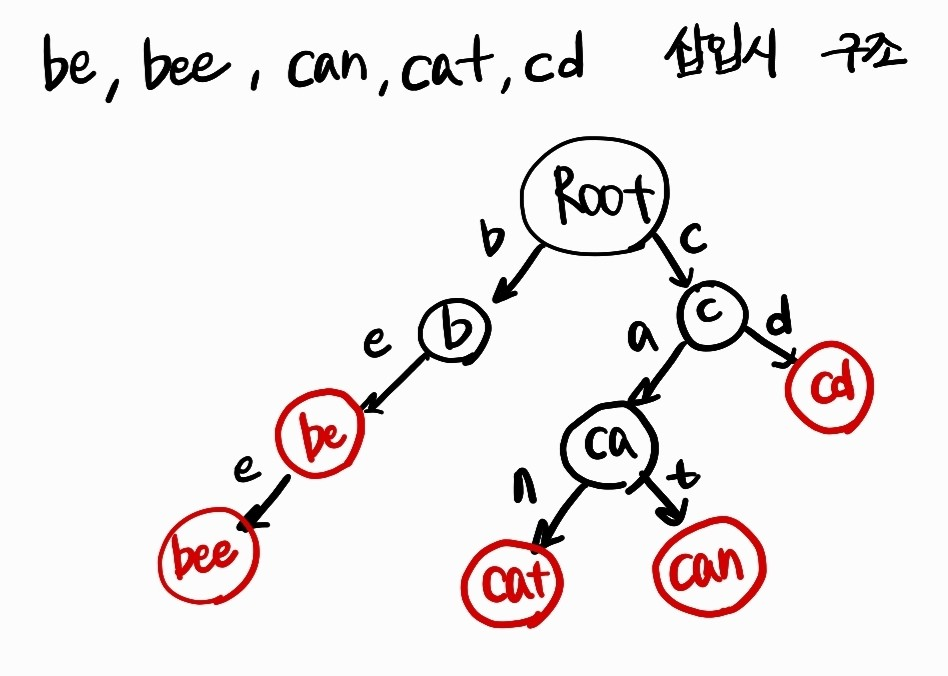 be, bee, can, cat, cd 삽입시 구조
Root
b
c
b
c
e
a
d
be
ca
cd
e
n
t
bee
cat
can